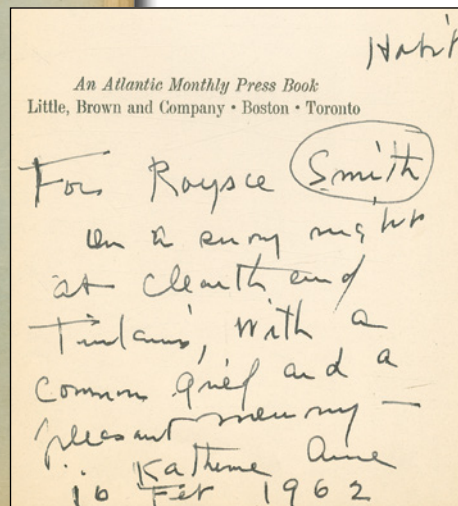 Habit
An Atlantic Monthly Press Book
Little, Brown and Company • Boston • Toronto
For Roysce Smith
on a snowy night
at Cleanth and
Tinkum's, with a
common grief and a
pleasant memory —
Katherine Anne
16 Feb 1962